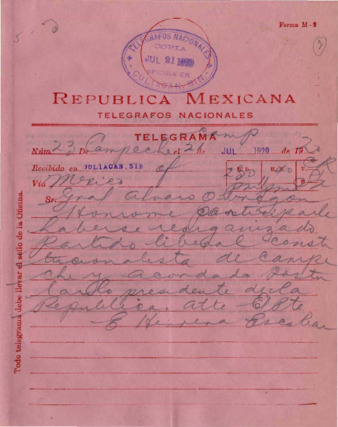 Forma M-2
TELEGRAFOS NACIONALES
COPIA
JUL 21 1920
OFICINA EN
CULIACAN, SIN.
REPUBLICA MEXICANA
TELEGRAFOS NACIONALES
TELEGRAMA
Núm. 23 De Campeche el 21 JUL 1920 de 19
Recibido en CULIACAN, SIN
Vía Mexico
Sr. Gral Alvaro Obregon
Honrome participarle
haberse reorganizado
Partido liberal consti
tucionalista de campe
che y acordado postu
larlo presidente de la
Republica. Atte El Pte
E Herrera Escobar
Todo telegrama debe llevar el sello de la Oficina.